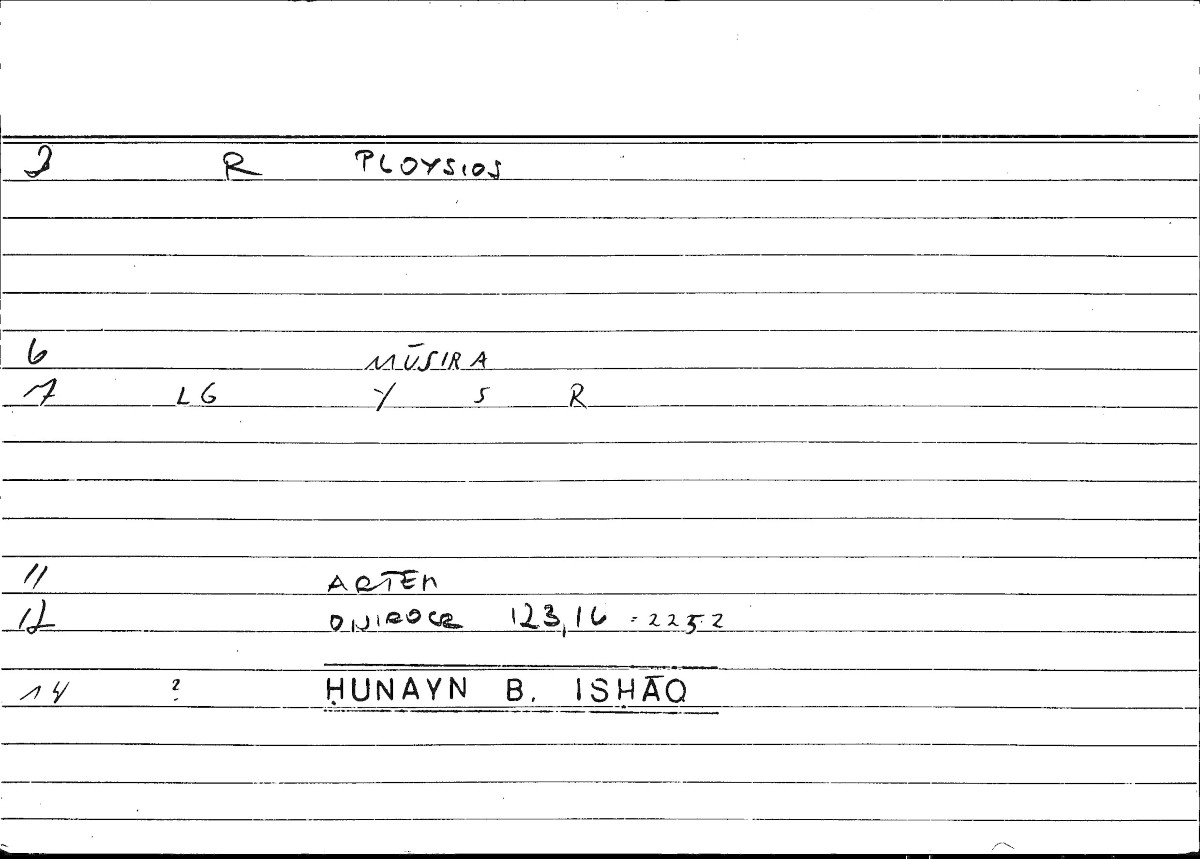 3 R PLOYSIOS
6 MŪSIRA
7 LG Y S R
11 ARTEM
12 ONIROCR 123,16 = 225.2
14 ? ḤUNAYN B. ISḤĀQ